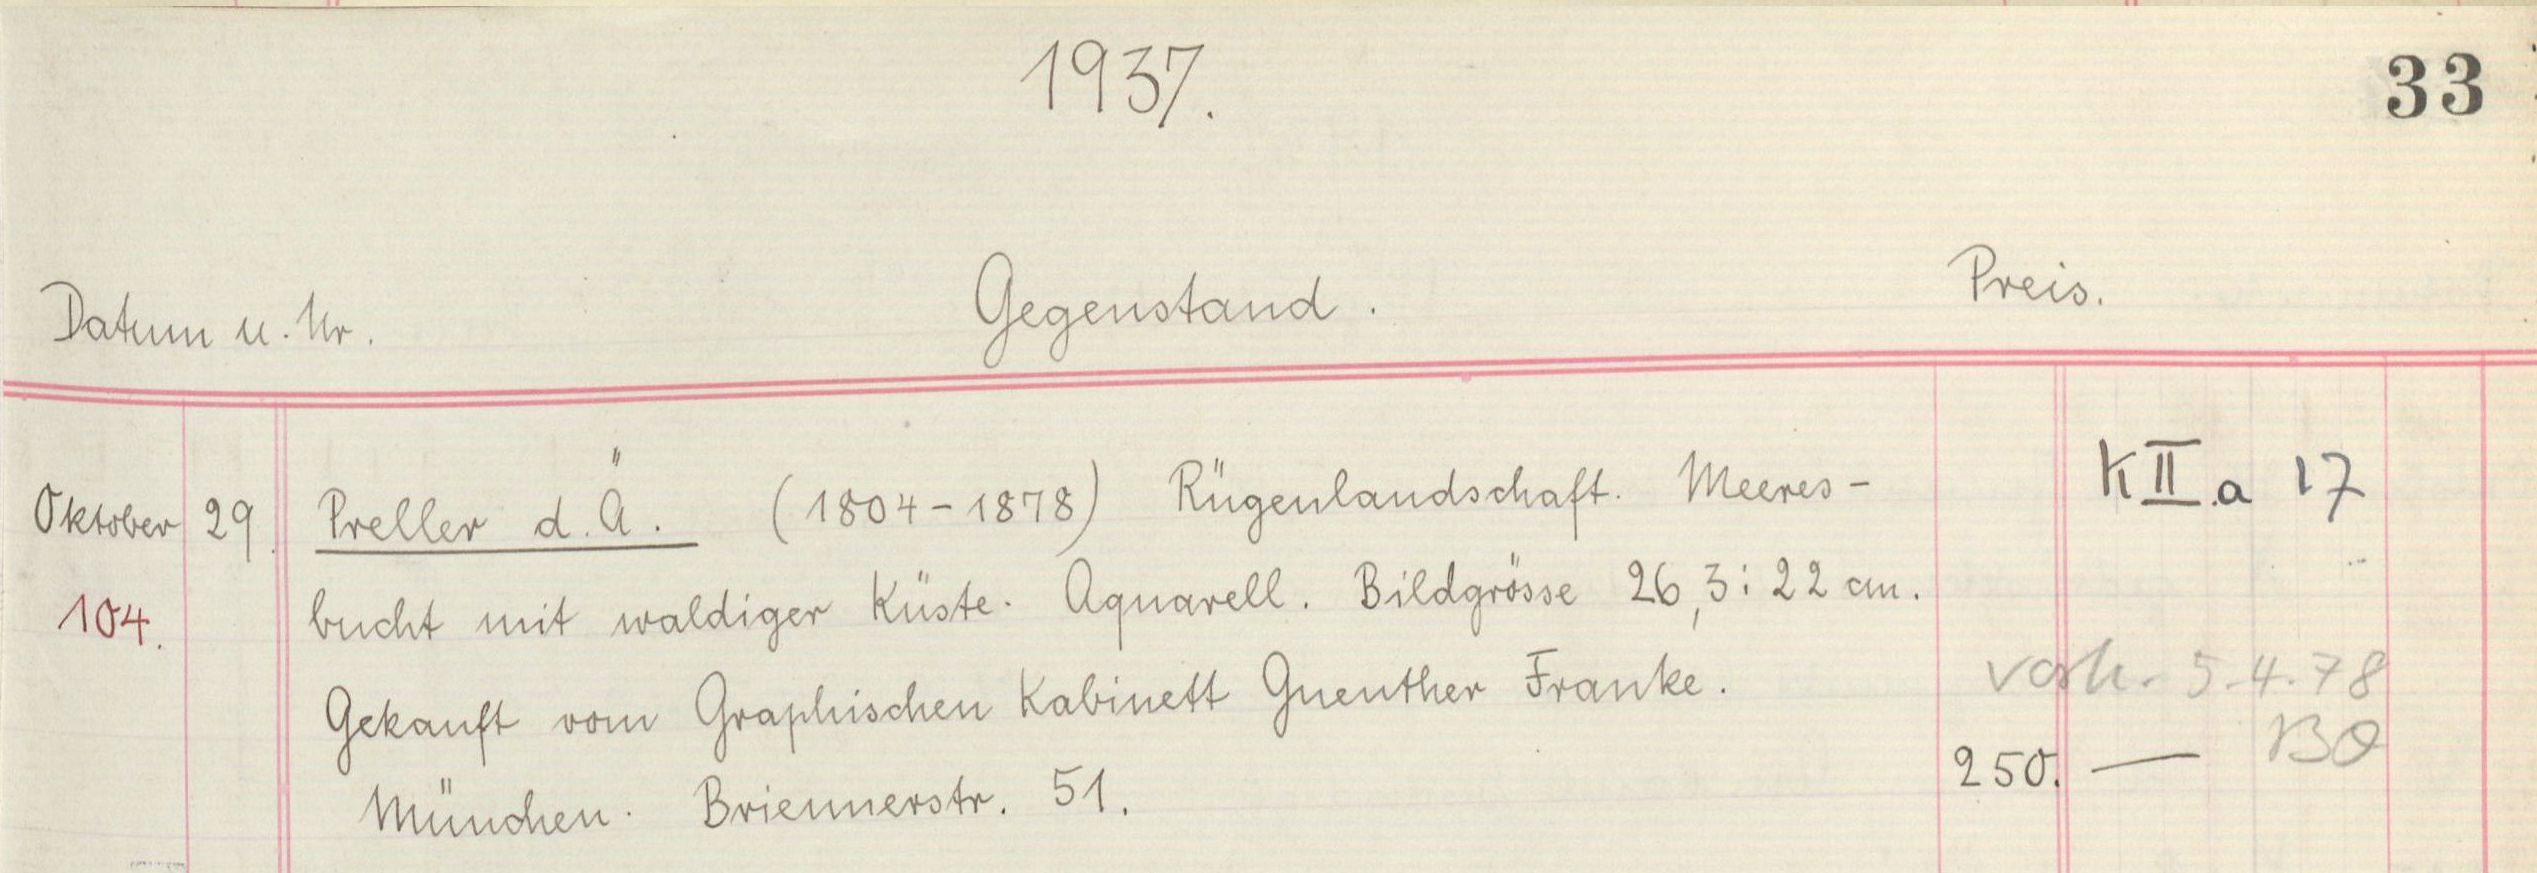 1937.
33
Datum u. Nr.
Gegenstand.
Preis.
Oktober 29. Preller d. Ä. (1804-1878) Rügenlandschaft. Meeres- KII.a 17
104. bucht mit waldiger Küste. Aquarell. Bildgrösse 26,3:22 cm.
Gekauft vom Graphischen Kabinett Guenther Franke. vorh. 5.4.78
250.— BO
München. Briennerstr. 51.